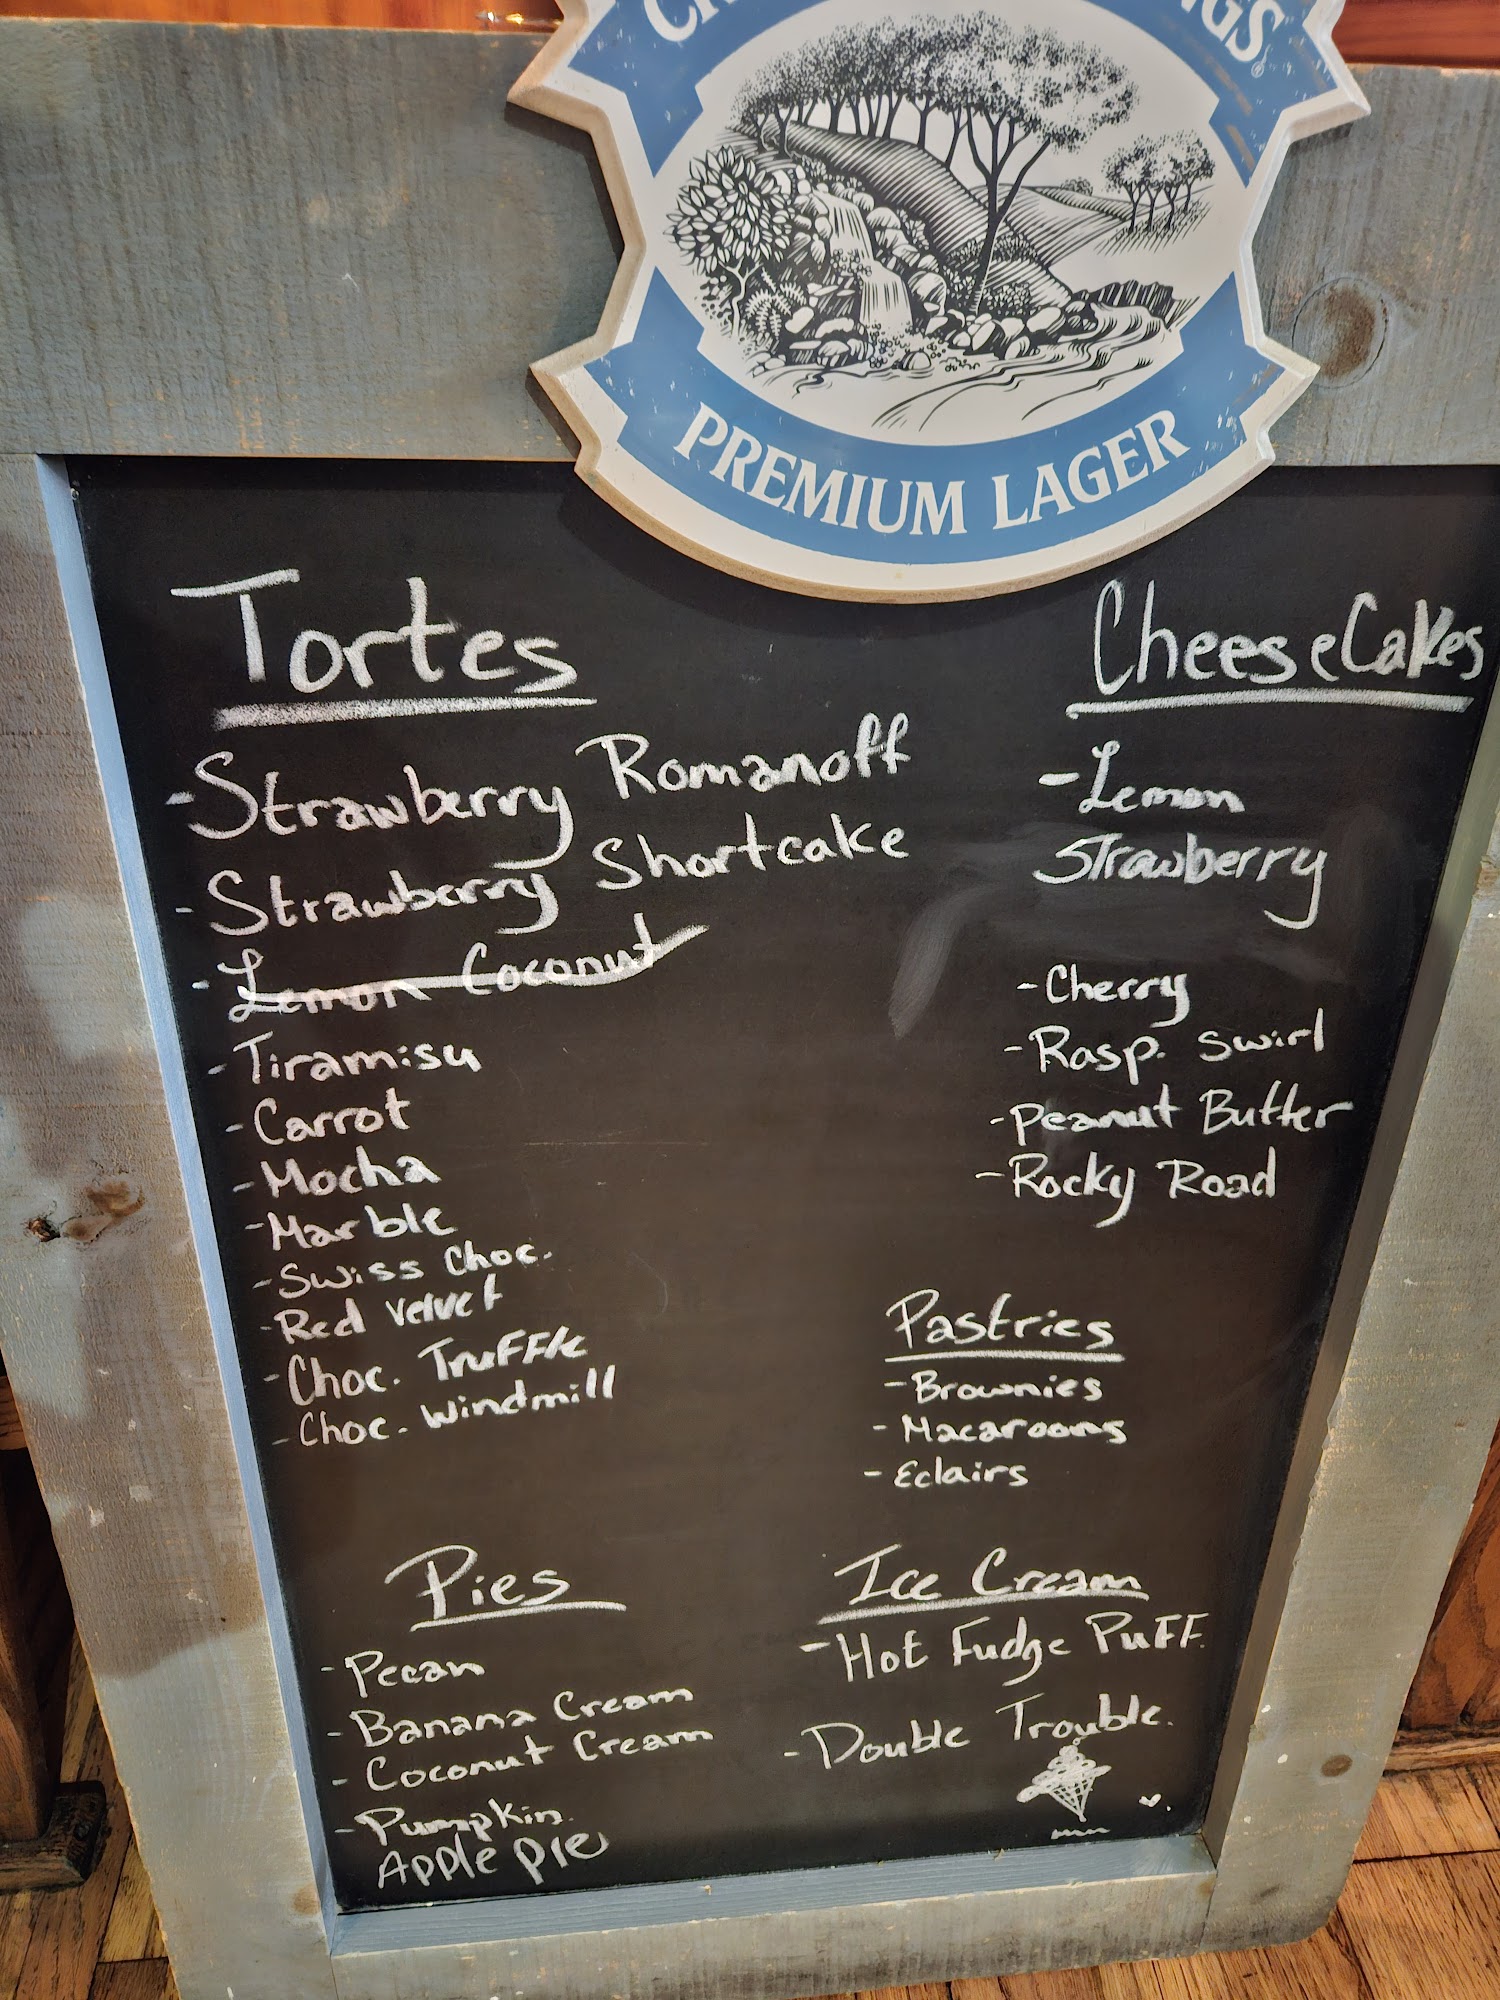 PREMIUM LAGER
Tortes
-Strawberry Romanoff
-Strawberry Shortcake
-Lemon Coconut
-Tiramisu
-Carrot
-Mocha
-Marble
-Swiss Choc.
-Red Velvet
-Choc. Truffle
-Choc. Windmill
CheeseCakes
-Lemon
Strawberry
-Cherry
-Rasp. Swirl
-Peanut Butter
-Rocky Road
Pastries
-Brownies
-Macaroons
-Eclairs
Pies
-Pecan
-Banana Cream
-Coconut Cream
-Pumpkin.
Apple pie
Ice Cream
-Hot Fudge Puff
-Double Trouble.